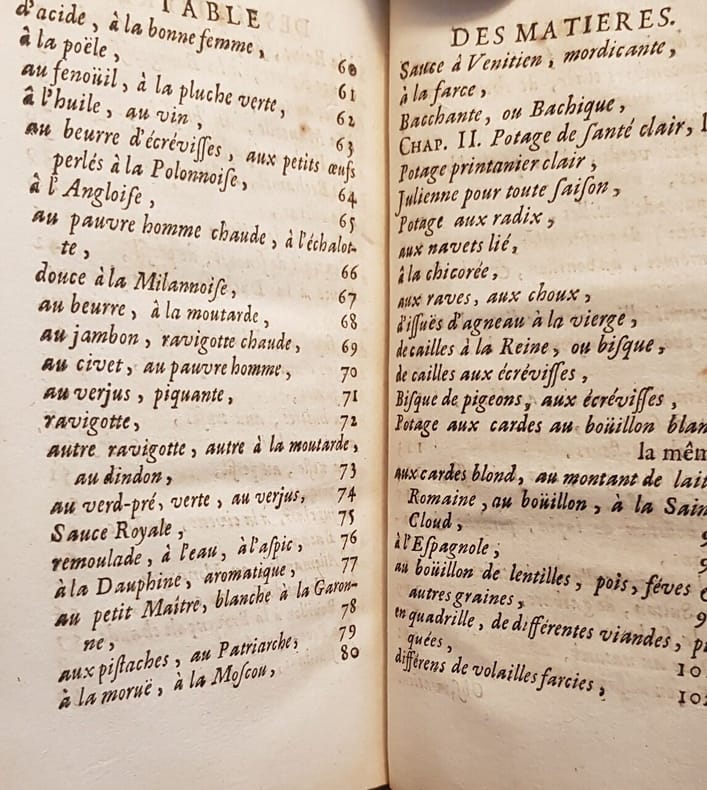 TABLE
d'acide, à la bonne femme, 60
à la poële, 61
au fenoüil, à la pluche verte, 62
à l'huile, au vin, 63
au beurre d'écrévisses, aux petits œufs
perlés à la Polonnoise, 64
à l'Angloise, 65
au pauvre homme chaude, à l'échalot-
te, 66
douce à la Milannoise, 67
au beurre, à la moutarde, 68
au jambon, ravigotte chaude, 69
au civet, au pauvre homme, 70
au verjus, piquante, 71
ravigotte, 72
autre ravigotte, autre à la moutarde,
au dindon, 73
au verd-pré, verte, au verjus, 74
Sauce Royale, 75
remoulade, à l'eau, à l'aspic, 76
à la Dauphine, aromatique, 77
au petit Maître, blanche à la Garon-
ne, 78
aux pistaches, au Patriarche, 79
à la moruë, à la Moscou, 80
DES MATIERES.
Sauce â Venitien, mordicante,
à la farce,
Bacchante, ou Bachique,
CHAP. II. Potage de santé clair,
Potage printanier clair,
Julienne pour toute saison,
Potage aux radix,
aux navets lié,
à la chicorée,
aux raves, aux choux,
d'issuës d'agneau à la vierge,
de cailles à la Reine, ou bisque,
de cailles aux écrévisses,
Bisque de pigeons, aux écrévisses,
Potage aux cardes au boüillon blan
la mêm
aux cardes blond, au montant de lait
Romaine, au boüillon, à la Sain
Cloud, 9
à l'Espagnole; 9
au boüillon de lentilles, pois, féves
autres graines, 9
en quadrille, de différentes viandes, pi
quées, 10
différens de volailles farcies, 10